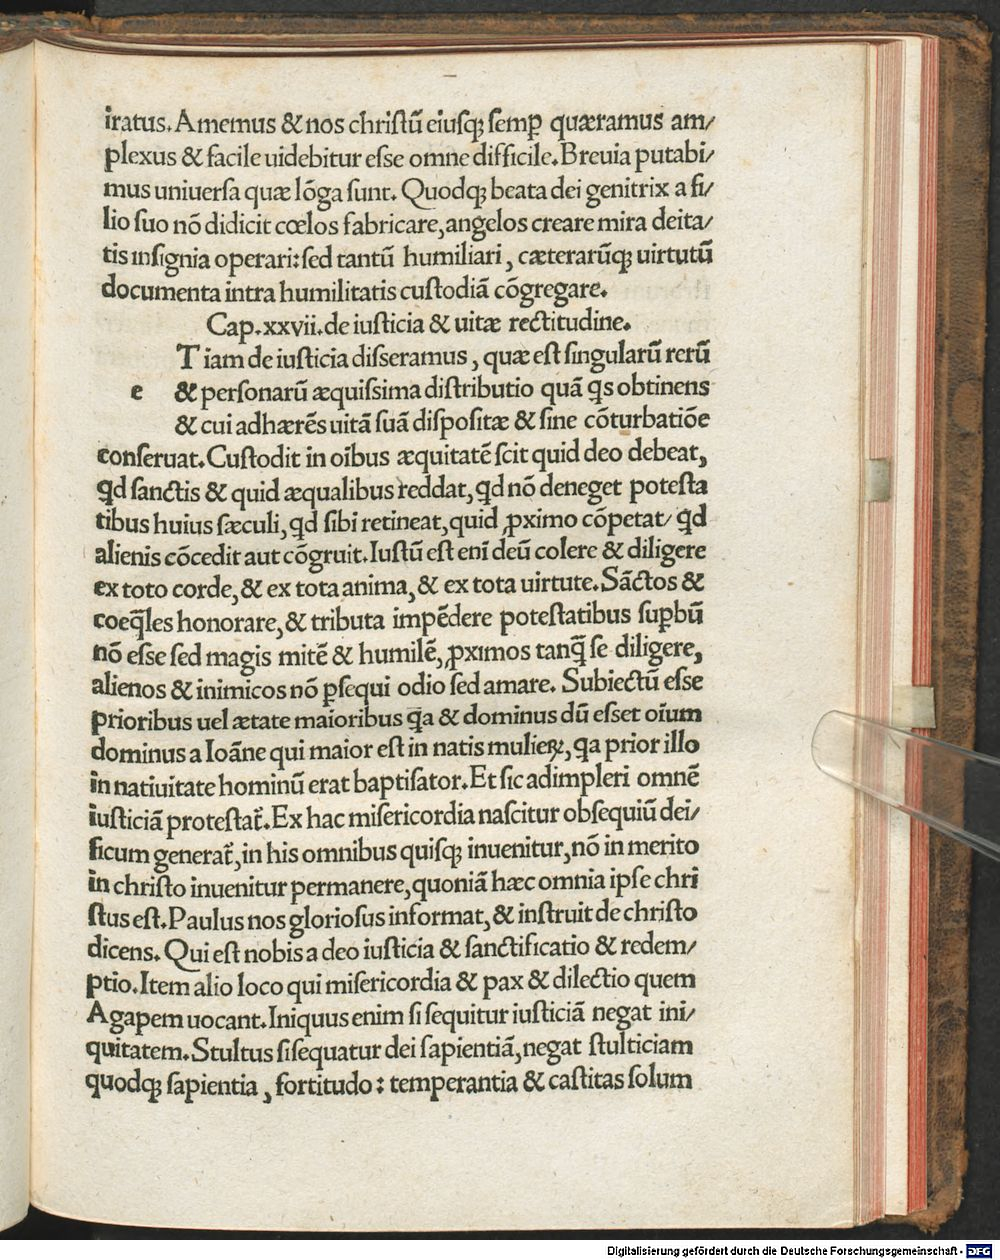 iratus. Amemus & nos christū eiusq; semꝑ quæramus am/
plexus & facile uidebitur esse omne difficile. Breuia putabi/
mus uniuersa quæ lōga sunt. Quodq; beata dei genitrix a fi/
lio suo nō didicit cœlos fabricare, angelos creare mira deita/
tis insignia operari: sed tantū humiliari, cæterarūq; uirtutū
documenta intra humilitatis custodiā cōgregare.
Cap. xxvii. de iusticia & uitæ rectitudine.
T iam de iusticia disseramus, quæ est singularū rerū
e & personarū æquissima distributio quā qs obtinens
& cui adhærēs uitā suā dispositæ & sine cōturbatiōe
conseruat. Custodit in oībus æquitatē scit quid deo debeat,
qd sanctis & quid æqualibus reddat, qd nō deneget potesta
tibus huius sæculi, qd sibi retineat, quid ꝓximo cōpetat/ qd
alienis cōcedit aut cōgruit. Iustū est enī deū colere & diligere
ex toto corde, & ex tota anima, & ex tota uirtute. Sāctos &
coeq̄les honorare, & tributa impēdere potestatibus suꝑbū
nō esse sed magis mitē & humilē, ꝓximos tanq̄ se diligere,
alienos & inimicos nō ꝑsequi odio sed amare. Subiectū esse
prioribus uel ætate maioribus q̄a & dominus dū esset oīum
dominus a Ioāne qui maior est in natis mulieꝝ, q̄a prior illo
in natiuitate hominū erat baptisator. Et sic adimpleri omnē
iusticiā protestat̄. Ex hac misericordia nascitur obsequiū dei/
ficum generat̄, in his omnibus quisq; inuenitur, nō in merito
in christo inuenitur permanere, quoniā hæc omnia ipse chri
stus est. Paulus nos gloriosus informat, & instruit de christo
dicens. Qui est nobis a deo iusticia & sanctificatio & redem/
ptio. Item alio loco qui misericordia & pax & dilectio quem
Agapem uocant. Iniquus enim si sequitur iusticiā negat ini/
quitatem. Stultus si sequatur dei sapientiā, negat stulticiam
quodq; sapientia, fortitudo: temperantia & castitas solum
Digitalisierung gefördert durch die Deutsche Forschungsgemeinschaft - DFG